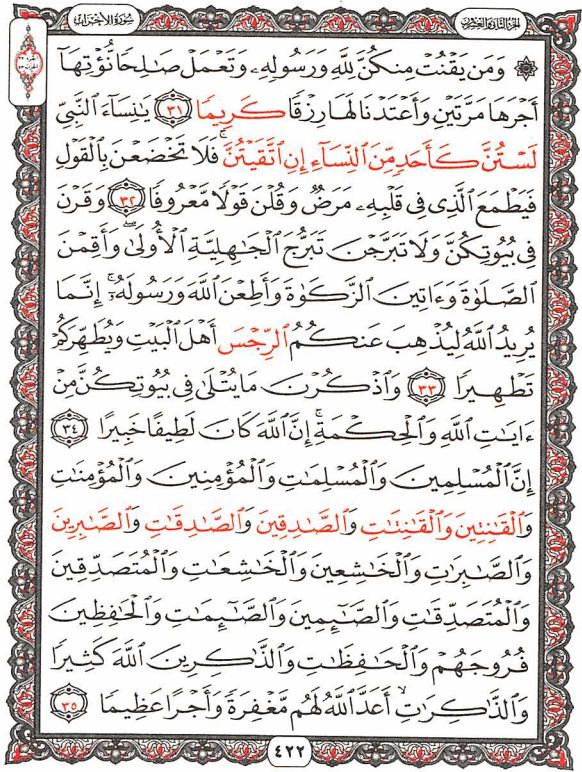 سورة الأحزاب
الجزء الثاني والعشرون
۞ وَمَن يَقْنُتْ مِنكُنَّ لِلَّهِ وَرَسُولِهِۦ وَتَعْمَلْ صَٰلِحًا نُّؤْتِهَآ
أَجْرَهَا مَرَّتَيْنِ وَأَعْتَدْنَا لَهَا رِزْقًا كَرِيمًا ٣١ يَٰنِسَآءَ ٱلنَّبِيِّ
لَسْتُنَّ كَأَحَدٍ مِّنَ ٱلنِّسَآءِ إِنِ ٱتَّقَيْتُنَّ ۚ فَلَا تَخْضَعْنَ بِٱلْقَوْلِ
فَيَطْمَعَ ٱلَّذِى فِى قَلْبِهِۦ مَرَضٌ وَقُلْنَ قَوْلًا مَّعْرُوفًا ٣٢ وَقَرْنَ
فِى بُيُوتِكُنَّ وَلَا تَبَرَّجْنَ تَبَرُّجَ ٱلْجَٰهِلِيَّةِ ٱلْأُولَىٰ ۖ وَأَقِمْنَ
ٱلصَّلَوٰةَ وَءَاتِينَ ٱلزَّكَوٰةَ وَأَطِعْنَ ٱللَّهَ وَرَسُولَهُۥٓ ۚ إِنَّمَا
يُرِيدُ ٱللَّهُ لِيُذْهِبَ عَنكُمُ ٱلرِّجْسَ أَهْلَ ٱلْبَيْتِ وَيُطَهِّرَكُمْ
تَطْهِيرًا ٣٣ وَٱذْكُرْنَ مَا يُتْلَىٰ فِى بُيُوتِكُنَّ مِنْ
ءَايَٰتِ ٱللَّهِ وَٱلْحِكْمَةِ ۚ إِنَّ ٱللَّهَ كَانَ لَطِيفًا خَبِيرًا ٣٤
إِنَّ ٱلْمُسْلِمِينَ وَٱلْمُسْلِمَٰتِ وَٱلْمُؤْمِنِينَ وَٱلْمُؤْمِنَٰتِ
وَٱلْقَٰنِتِينَ وَٱلْقَٰنِتَٰتِ وَٱلصَّٰدِقِينَ وَٱلصَّٰدِقَٰتِ وَٱلصَّٰبِرِينَ
وَٱلصَّٰبِرَٰتِ وَٱلْخَٰشِعِينَ وَٱلْخَٰشِعَٰتِ وَٱلْمُتَصَدِّقِينَ
وَٱلْمُتَصَدِّقَٰتِ وَٱلصَّٰٓئِمِينَ وَٱلصَّٰٓئِمَٰتِ وَٱلْحَٰفِظِينَ
فُرُوجَهُمْ وَٱلْحَٰفِظَٰتِ وَٱلذَّٰكِرِينَ ٱللَّهَ كَثِيرًا
وَٱلذَّٰكِرَٰتِ أَعَدَّ ٱللَّهُ لَهُم مَّغْفِرَةً وَأَجْرًا عَظِيمًا ٣٥
٤٢٢